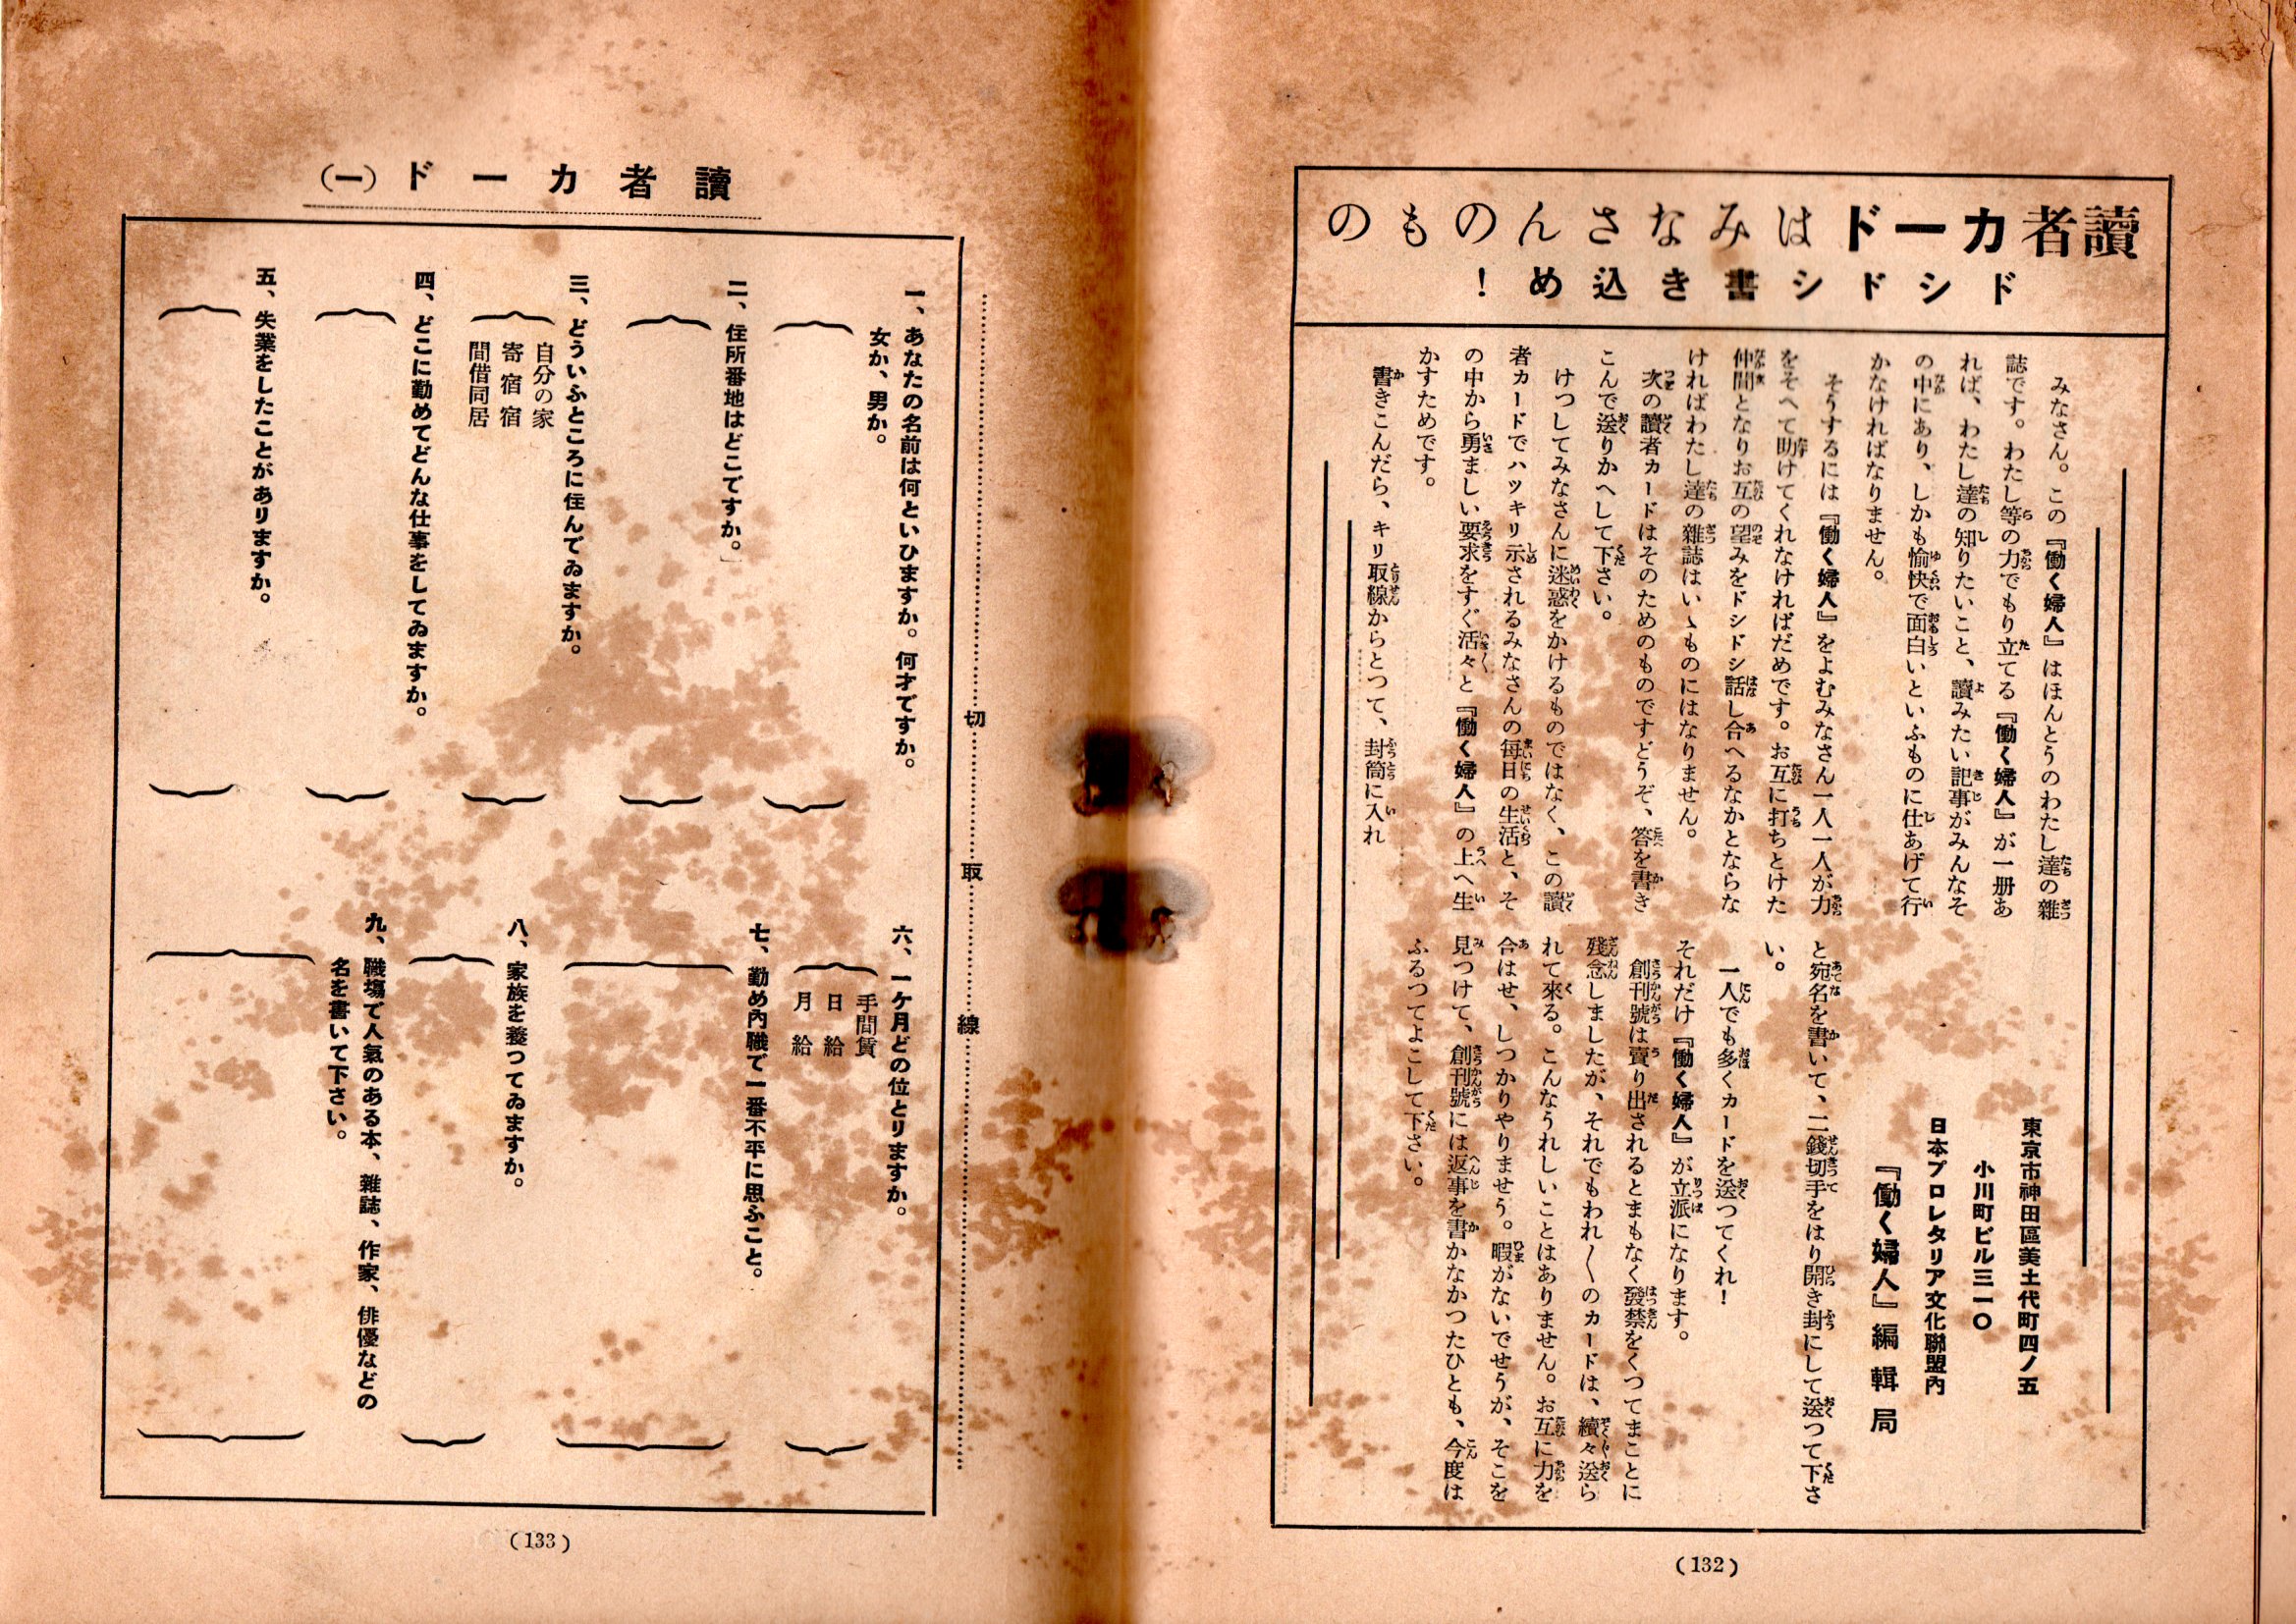 讀者カードはみなさんのもの
ドシドシ書き込め!
みなさん。この『働く婦人』はほんとうのわたし達の雜
誌です。わたし等の力でもり立てる『働く婦人』が一册あ
れば、わたし達の知りたいこと、讀みたい記事がみんなそ
の中にあり、しかも愉快で面白いといふものに仕あげて行
かなければなりません。
そうするには『働く婦人』をよむみなさん一人一人が力
をそへて助けてくれなければだめです。お互に打ちとけた
仲間となりお互の望みをドシドシ話し合へるなかとならな
ければわたし達の雜誌はいゝものにはなりません。
次の讀者カードはそのためのものですどうぞ、答を書き
こんで送りかへして下さい。
けつしてみなさんに迷惑をかけるものではなく、この讀
者カードでハツキリ示されるみなさんの每日の生活と、そ
の中から勇ましい要求をすぐ活々と『働く婦人』の上へ生
かすためです。
書きこんだら、キリ取線からとつて、封筒に入れ
東京市神田區美土代町四ノ五
小川町ビル三一〇
日本プロレタリア文化聯盟內
『働く婦人』編輯局
と宛名を書いて、二錢切手をはり開き封にして送つて下さ
い。
一人でも多くカードを送つてくれ!
それだけ『働く婦人』が立派になります。
創刊號は賣り出されるとまもなく發禁をくつてまことに
殘念しましたが、それでもわれ〱のカードは、續々送ら
れて來る。こんなうれしいことはありません。お互に力を
合はせ、しつかりやりませう。暇がないでせうが、そこを
見つけて、創刊號には返事を書かなかつたひとも、今度は
ふるつてよこして下さい。
(132)
切取線
讀者カード(一)
一、あなたの名前は何といひますか。何才ですか。
女か、男か。
二、住所番地はどこですか。
三、どういふところに住んでゐますか。
自分の家
寄宿宿
間借同居
四、どこに勤めてどんな仕事をしてゐますか。
五、失業をしたことがありますか。
六、一ケ月どの位とりますか。
手間賃
日給
月給
七、勤め內職で一番不平に思ふこと。
八、家族を養つてゐますか。
九、職塲で人氣のある本、雜誌、作家、俳優などの
名を書いて下さい。
(133)